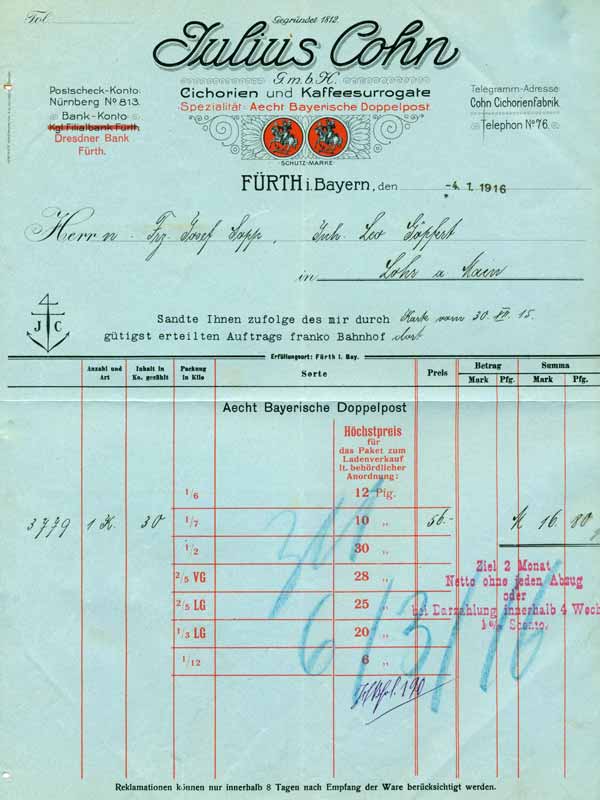 Fol.
Gegründet 1812.
Julius Cohn
G.m.b.H.
Cichorien und Kaffeesurrogate
Spezialität: Aecht Bayerische Doppelpost
SCHUTZ-MARKE
Postscheck-Konto:
Nürnberg No 813.
Bank-Konto
Kgl. Filialbank Fürth.
Dresdner Bank
Fürth.
Telegramm-Adresse
Cohn Cichorienfabrik.
Telephon No 76.
FÜRTH i. Bayern, den -4. 1. 1916
Herrn Frz. Josef Sopp, Inh. Leo Göpfert
in Lohr a Main
J C
Sandte Ihnen zufolge des mir durch Karte vom 30. XII. 15.
gütigst erteilten Auftrags franko Bahnhof dort
Erfüllungsort: Fürth i. Bay.
Anzahl und Art Inhalt in Ko. gezählt Packung in Kilo Sorte Preis Betrag Mark Pfg. Summa Mark Pfg.
Aecht Bayerische Doppelpost
Höchstpreis
für
das Paket zum
Ladenverkauf
lt. behördlicher
Anordnung:
1/6 12 Pfg.
3779 1 K. 30 1/7 10 „ 56.- M 16. 80
1/2 30 „
2/5 VG 28 „
2/5 LG 25 „
1/3 LG 20 „
1/12 6 „
Ziel 2 Monat
Netto ohne jeden Abzug
oder
bei Barzahlung innerhalb 4 Woch
1% Sconto.
6/3/16
190
Reklamationen können nur innerhalb 8 Tagen nach Empfang der Ware berücksichtigt werden.